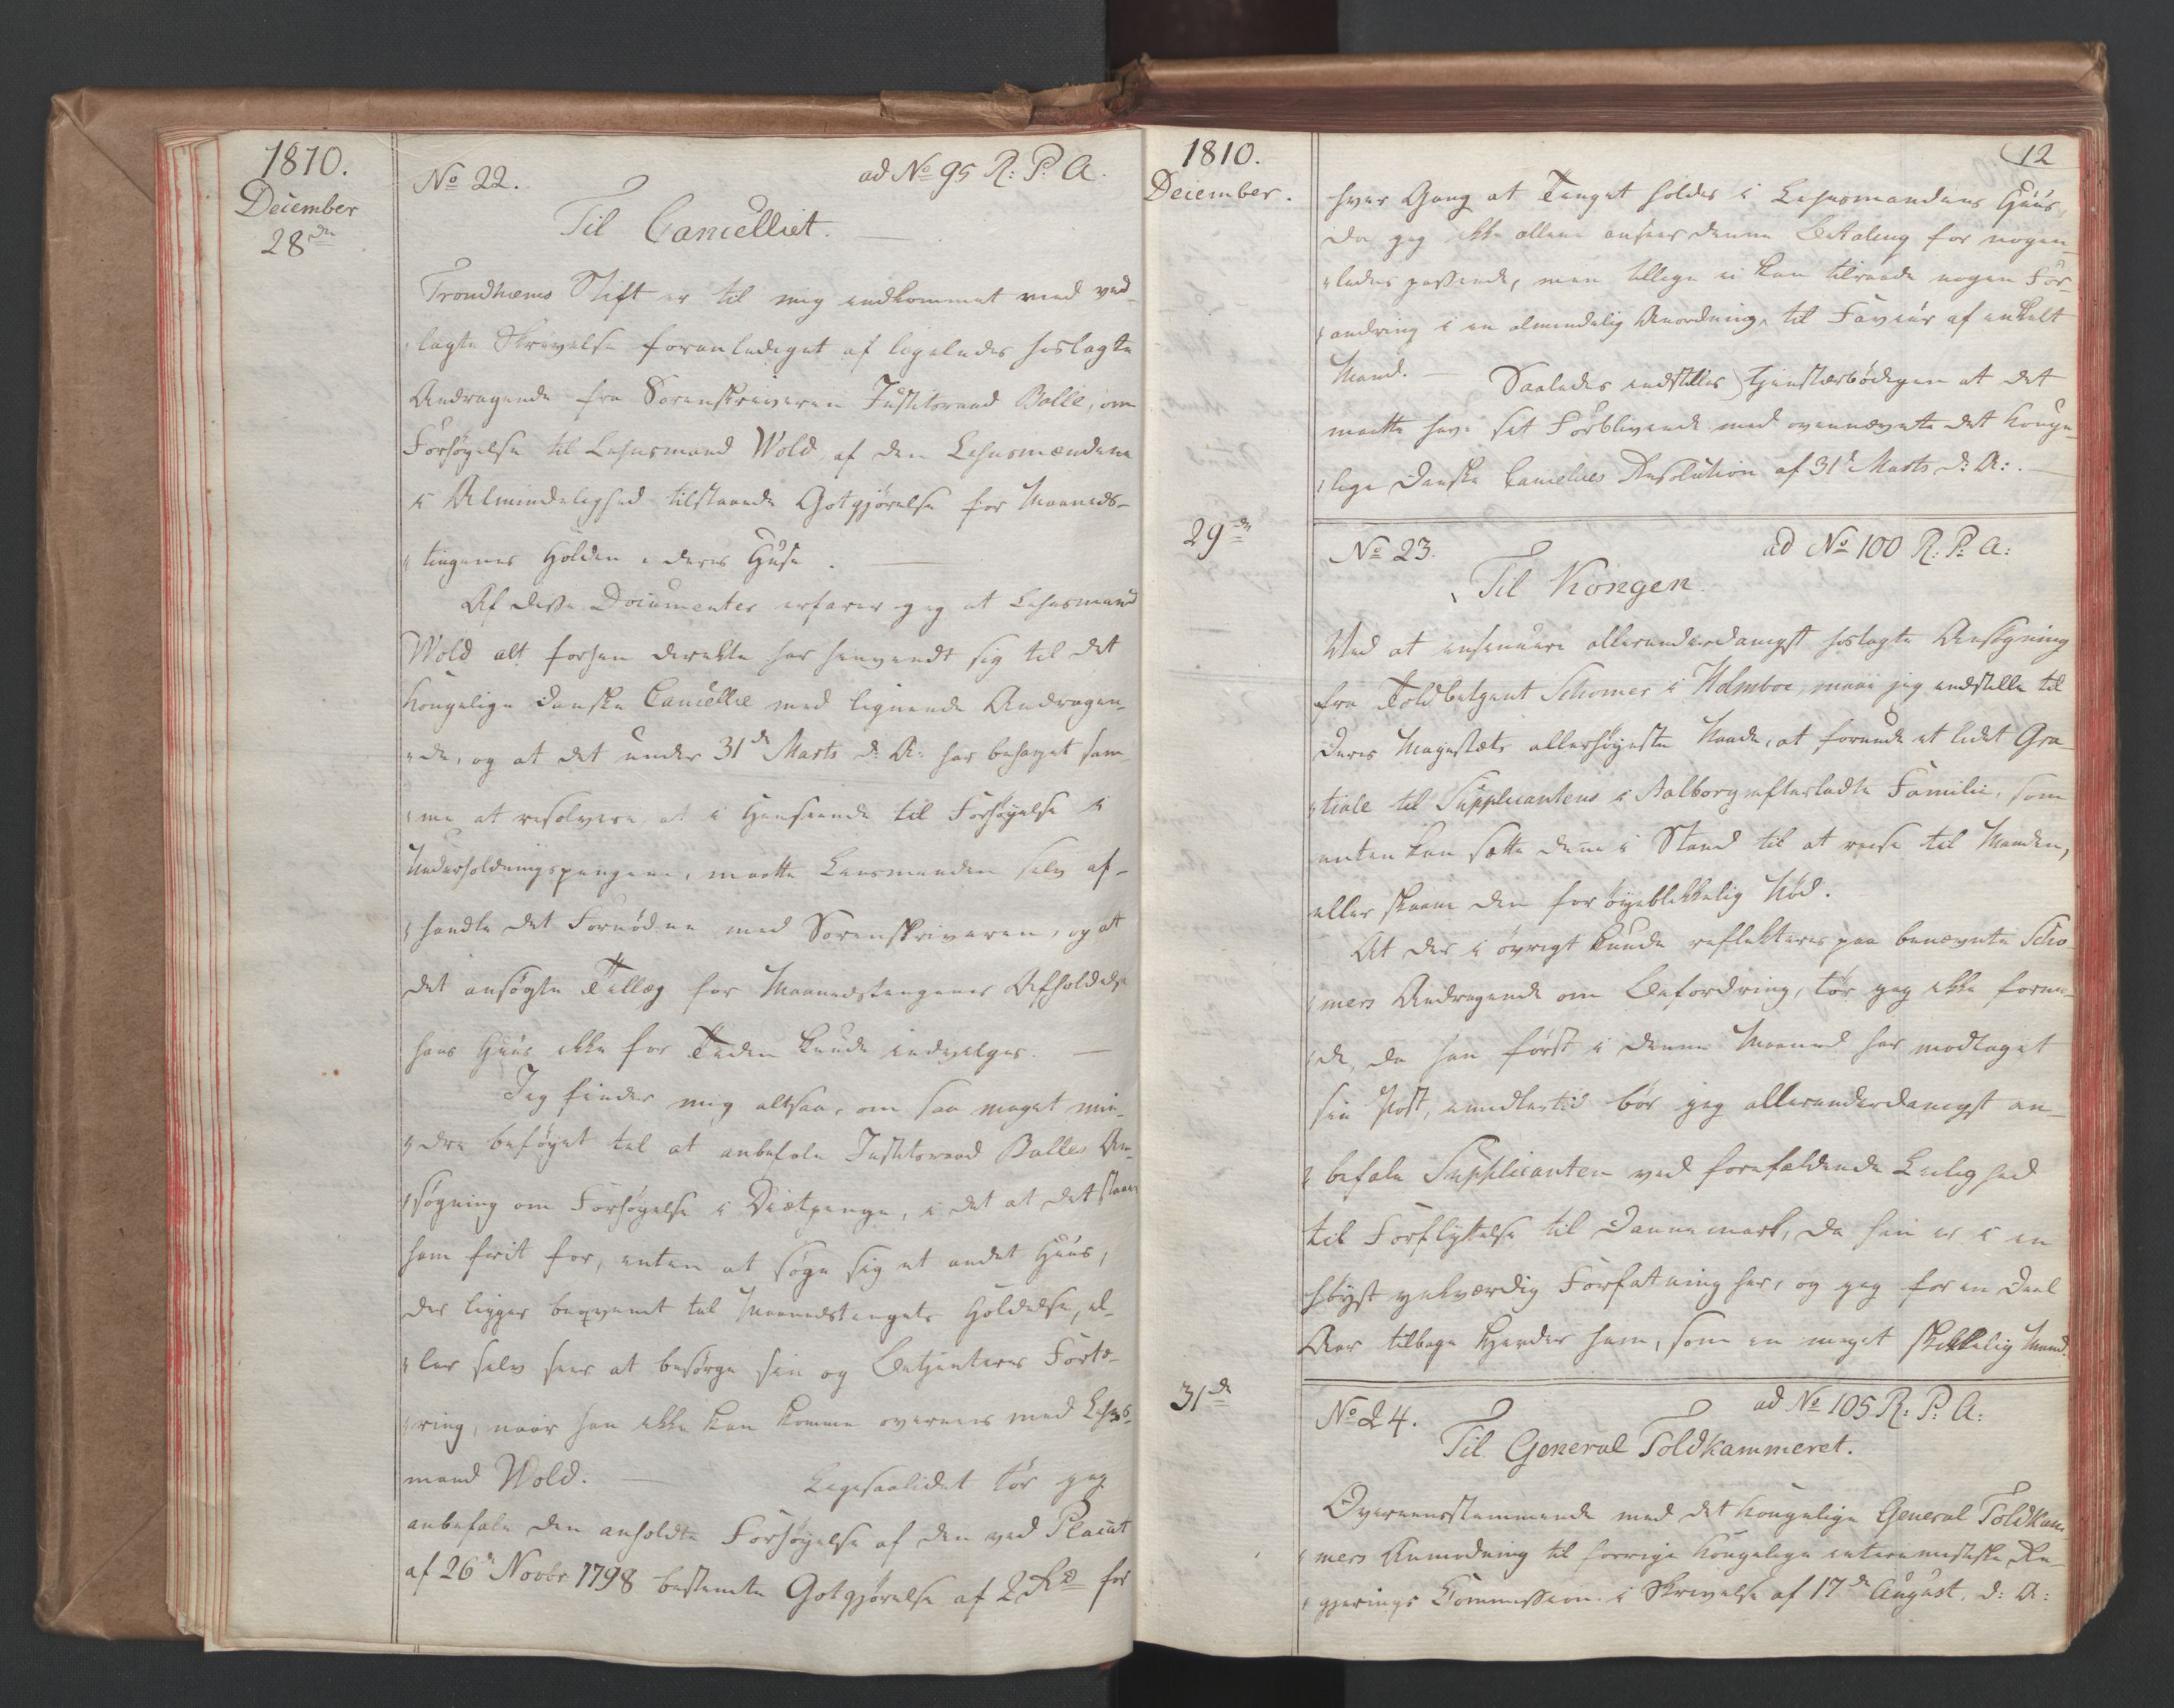 1810.
December
28de
No 22.
ad No 95 R: P: A.
Til Cancelliet.
Trondhiems Stift er til mig indkommet med ved-
lagte Skrivelse foranlediget af ligeledes hoslagte
Andragende fra Sorenskriveren Justitsraad Balle, om
Forhøyelse til Lehnsmand Wold, af den Lehnsmændene
i Almindelighed tilstaaede Godtgjørelse for Maaneds-
tingenes Holden i deres Huse.
Af disse Documenter erfarer jeg at Lehnsmand
Wold alt forhen derekte har henvendt sig til det
Kongelige danske Cancellie med lignende Andragen-
de, og at det under 31de Marts d: A: har behaget sam-
me at resolvere, at i Henseende til Forhøyelse i
Underholdningspengene, maatte Lensmanden selv af-
handle det Fornødne med Sorenskriveren, og at
det ansøgte Tillæg for Maanedstingenes Afholdelse i
hans Huus ikke for Tiden kunde indvilges.
Jeg finder mig altsaa, om saa meget min-
dre beføyet til at anbefale Justitsraad Balles An-
søgning om Forhøyelse i Diætpenge, i det at det staaer
ham frit for, enten at søge sig et andet Huus,
der ligger beqvemt til Maanedstingets Holdelse, el-
ler selv seer at besørge sin og Betjenteres Fortæ-
ring, naar han ikke kan komme overeens med Lehns-
mand Wold. Ligesaalidet tør jeg
anbefale den anholdte Forhøyelse af den ved Placat
af 26de Novbr 1798 bestemte Godtgjørelse af 2 Rd for
1810.
December.
12
hver Gang at Tinget holdes i Lehnsmandens Huus,
da jeg ikke allene anseer denne Betaling for nogen-
ledes passende, men tillige ei kan tilraade nogen For-
andring i en almindelig Anordning, til Faveur af enkelt
Mand. Saaledes indstilles tjenstærbødigen at det
maatte have sit Forblivende med ovennævnte det Konge-
lige Danske Cancelies Resolution af 31te Marts d: A:.
29de
No 23.
ad No 100 R: P: A:
Til Kongen.
Ved at insinuere allerunderdanigst hoslagte Ansøgning
fra Toldbetjent Schomer i Holmboe, maae jeg indstille til
Deres Majestæts allerhøyeste Naade, at forunde et lidet Gra-
tiale til Supplicantens i Aalborg efterladte Familie, som
enten kan sætte denne i Stand til at reise til Manden,
eller skaane den for øyeblikkelig Nød.
At der i øvrigt kunde reflekteres paa benævnte Scho-
mers Andragende om Befordring, tør jeg ikke formo-
de, da han først i denne Maaned har modtaget
sin Post, imidlertid bør jeg allerunderdanigst an-
befale Supplicanten ved forefaldende Leilighed
til Forflyttelse til Dannemark, da han er i en
høyst ynkværdig Forfatning her, og jeg for en Deel
Aar tilbage kjender ham, som en meget skikkelig Mand.
31de
No 24.
ad No 105 R: P: A:
Til General Toldkammeret.
Overeensstemmende med det Kongelige General Toldkam-
mers Anmodning til forrige Kongelige interimistiske Re-
gjerings Commission i Skrivelse af 17de August d: A: